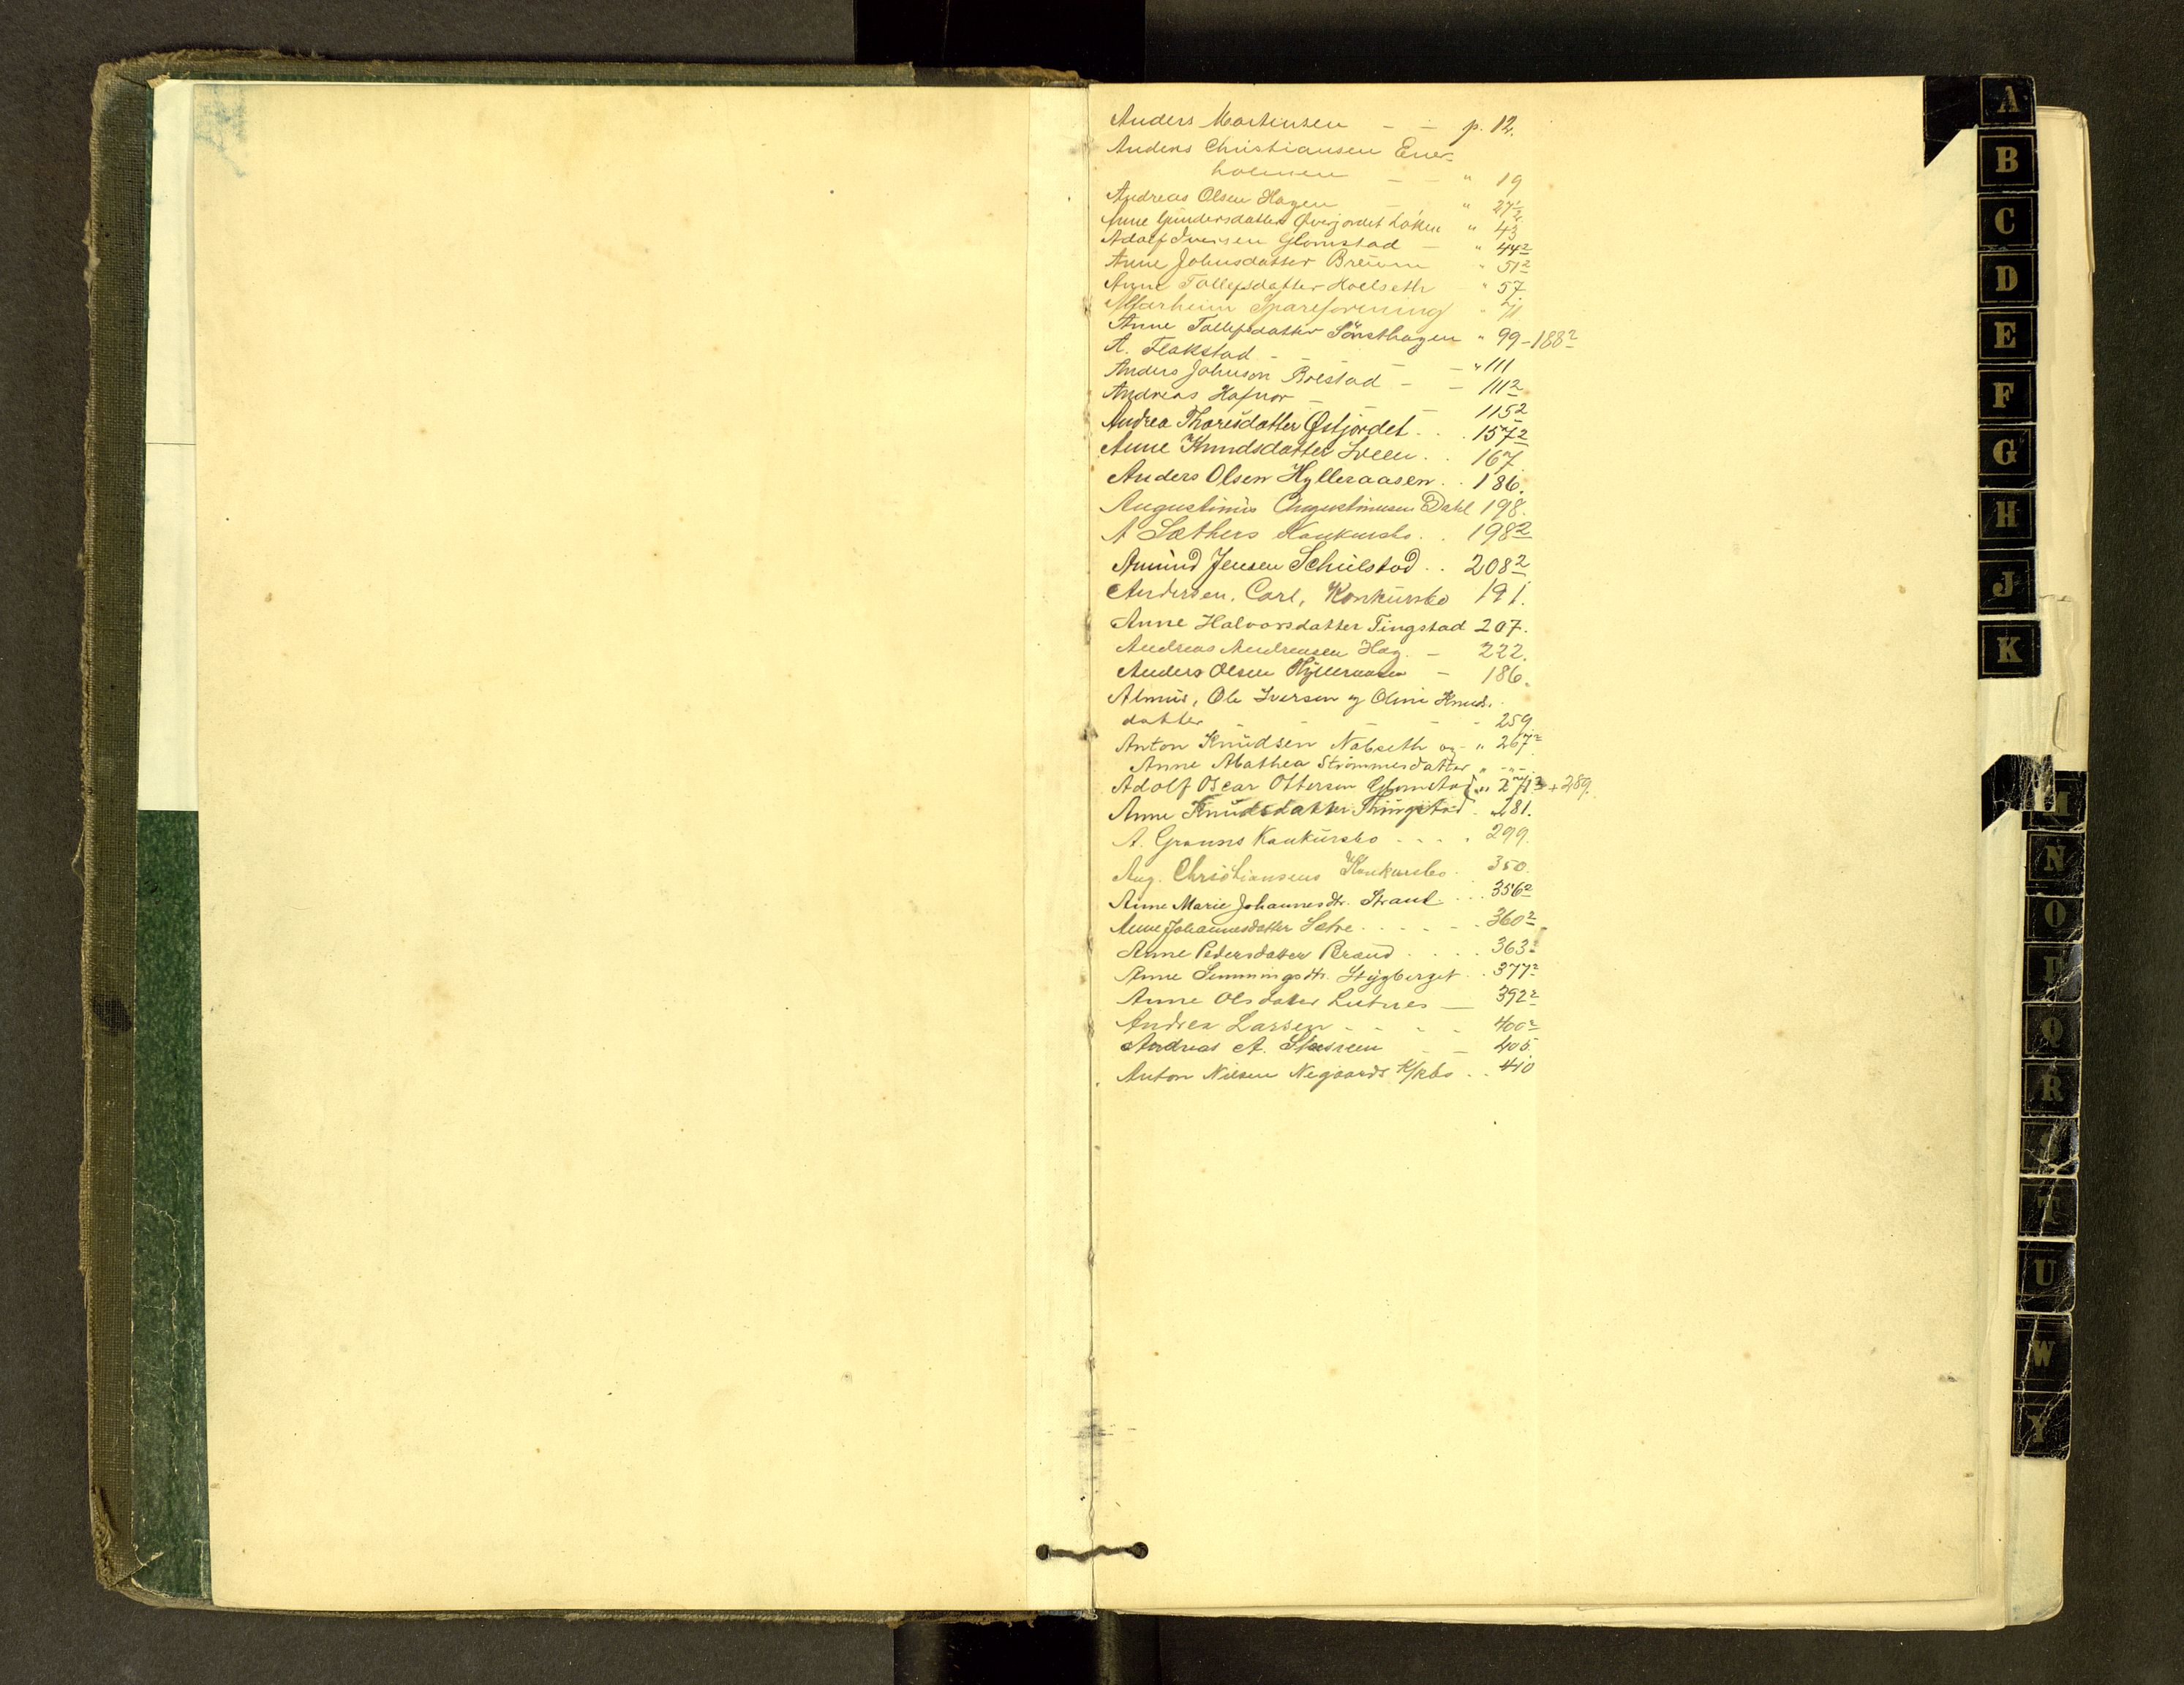 Anders Martinsen - - p. 12.
Anders Christiansen Ener-
holmen - - " 19
Andreas Olsen Hagen - " 27½
Anne Gundersdatter Øverjordet Løken " 43
Adolf Iversen Glomstad - " 44²
Anne Johnsdatter Breum " 51²
Anne Tollefsdatter Koelseth " 57
Alfarheim Spareforening "
Anne Tollefsdatter Sönsthagen " 99-188²
A. Flakstad - - - - " 111
Anders Johnson Bolstad - - 111²
Andreas Hafnor - - - 115²
Andrea Thoresdatter Østjordet . . . 157²
Anne Knudsdatter Sveen . . 167.
Anders Olsen Hylleraasen . . 186.
Augustinus Augustinussen Dahl 198.
A Sæthers Konkursbo . . 198²
Amund Jensen Schülstad . . 208²
Andersen, Carl, Konkursbo 191.
Anne Halvorsdatter Tingstad 207.
Andreas Andreasen Hag. - 222.
Anders Olsen Hylleraasen - 186.
Almus, Ole Iversen og Oline Knuds.
datter - - - - - 259
Anton Knudsen Nabseth og - " 267²
Anne Abathea Strømmesdatter " -"-
Adolf Oscar Ottersen Glomstad " 271² + 289.
Anne Knudsdatter Thingstad . 281.
A. Granns Konkursbo . . . . 299.
Aug. Christiansens Konkursbo . 350.
Anne Marie Johannesdtr. Strand . . . 356²
Anne Johannesdatter Sætre . . . . . . 360²
Anne Pedersdatter Braend . . . . 363²
Anne Simmingsdtr. Stygberget . . 377²
Anne Olsdatter Lutnes — 392²
Andrea Lassen - - - - 400²
Andreas A. - - 405
Anton Nilsen Negaards K/kbo . . 410
A
B
C
D
E
F
G
H
J
K
M
N
O
P
Q
R
S
T
U
W
Y